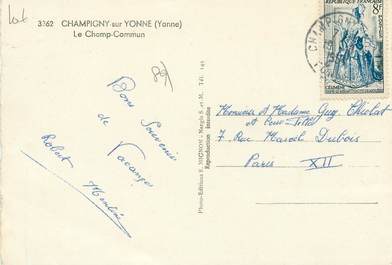 Lot
3362 CHAMPIGNY-sur YONNE (Yonne)
Le Champ-Commun
Bons Souvenirs
de
Vacances
Robert
Photo-Editions F. MIGNON - Nangis S.-et-M. Tél. 145
Reproduction interdite
RÉPUBLIQUE FRANÇAISE
8F
POSTES
CÉLIMÈNE
CHAMPIGNY
Monsieur et Madame Guy
et leur
7 Rue Marcel Dubois
Paris XII